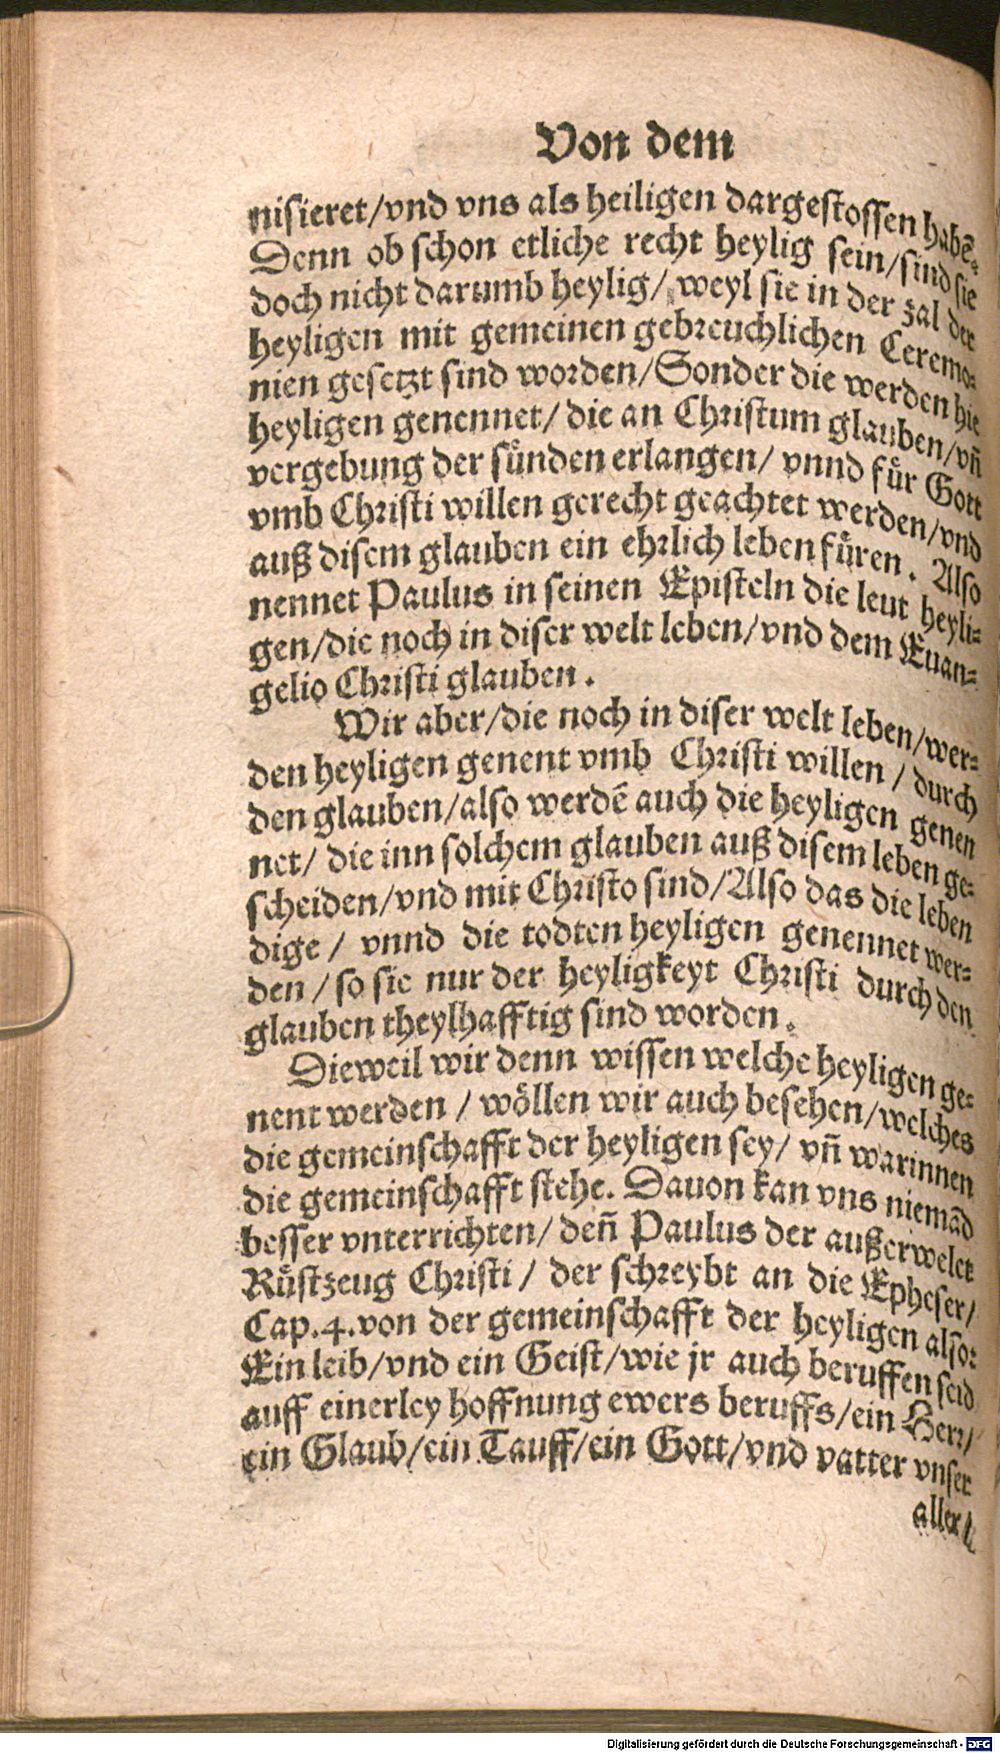 Von dem
nisieret/vnd vns als heiligen dargestossen habē.
Denn ob schon etliche recht heylig sein/sind sie
doch nicht darumb heylig/ weyl sie in der zal der
heyligen mit gemeinen gebreuchlichen Ceremo-
nien gesetzt sind worden/Sonder die werden hie
heyligen genennet/ die an Christum glauben/vñ
vergebung der sünden erlangen/ vnnd für Gott
vmb Christi willen gerecht geachtet werden/vnd
auß disem glauben ein ehrlich leben füren. Also
nennet Paulus in seinen Episteln die leut heyli-
gen/die noch in diser welt leben/vnd dem Euan-
gelio Christi glauben.
Wir aber/die noch in diser welt leben/wer-
den heyligen genent vmb Christi willen / durch
den glauben/also werdē auch die heyligen genen
net/ die inn solchem glauben auß disem leben ge-
scheiden/vnd mit Christo sind/Also das die leben
dige / vnnd die todten heyligen genennet wer-
den / so sie nur der heyligkeyt Christi durch den
glauben theylhafftig sind worden.
Dieweil wir denn wissen welche heyligen ge-
nent werden / wöllen wir auch besehen/welches
die gemeinschafft der heyligen sey/ vñ warinnen
die gemeinschafft stehe. Dauon kan vns niemād
besser vnterrichten/ deñ Paulus der außerwelet
Rüstzeug Christi / der schreybt an die Epheser/
Cap.4.von der gemeinschafft der heyligen also:
Ein leib/vnd ein Geist/wie jr auch beruffen seid
auff einerley hoffnung ewers beruffs/ein Herr/
ein Glaub/ein Tauff/ein Gott/vnd vatter vnser
aller/
Digitalisierung gefördert durch die Deutsche Forschungsgemeinschaft - DFG